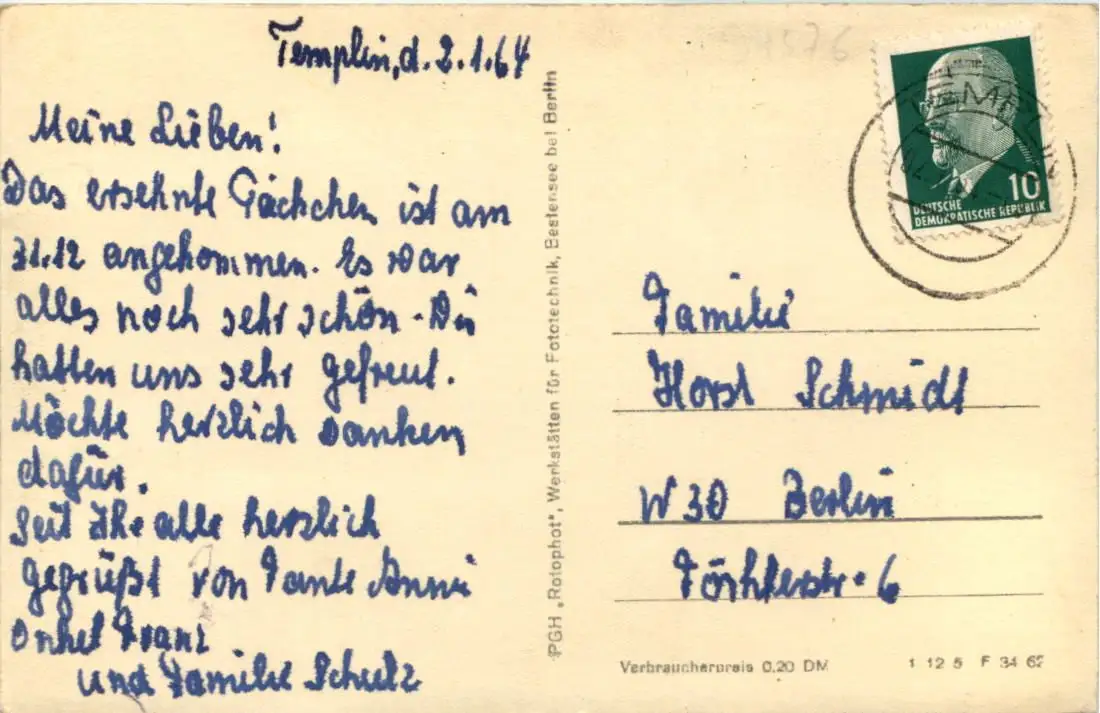 Templin, d. 2.1.64
Meine Lieben!
Das ersehnte Päckchen ist am
31.12 angekommen. Es war
alles noch sehr schön. Wir
hatten uns sehr gefreut.
Möchte herzlich danken
dafür.
Seit Ihr alle herzlich
gegrüßt von Tante Anni
Onkel Franz
und Familie Schulz
PGH „Rotophot", Werkstätten für Fototechnik, Bestensee bei Berlin
10
DEUTSCHE
DEMOKRATISCHE REPUBLIK
TEMPLIN
Familie
Horst Schmidt
W 30 Berlin
6
Verbraucherpreis 0,20 DM
1 12 5 F 34 62